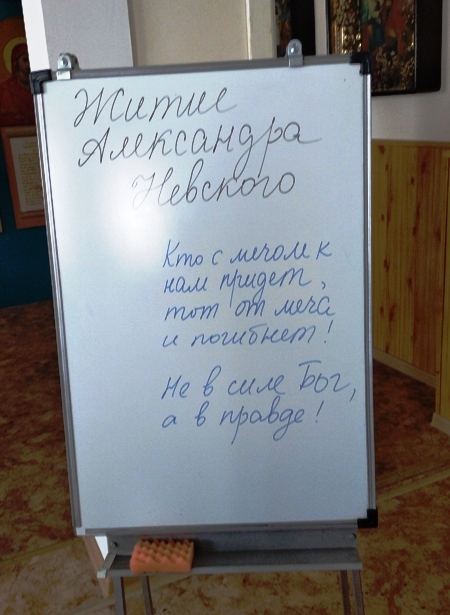 Житие
Александра
Невского
Кто с мечом к
нам придет,
тот от меча
и погибнет!
Не в силе Бог,
а в правде!